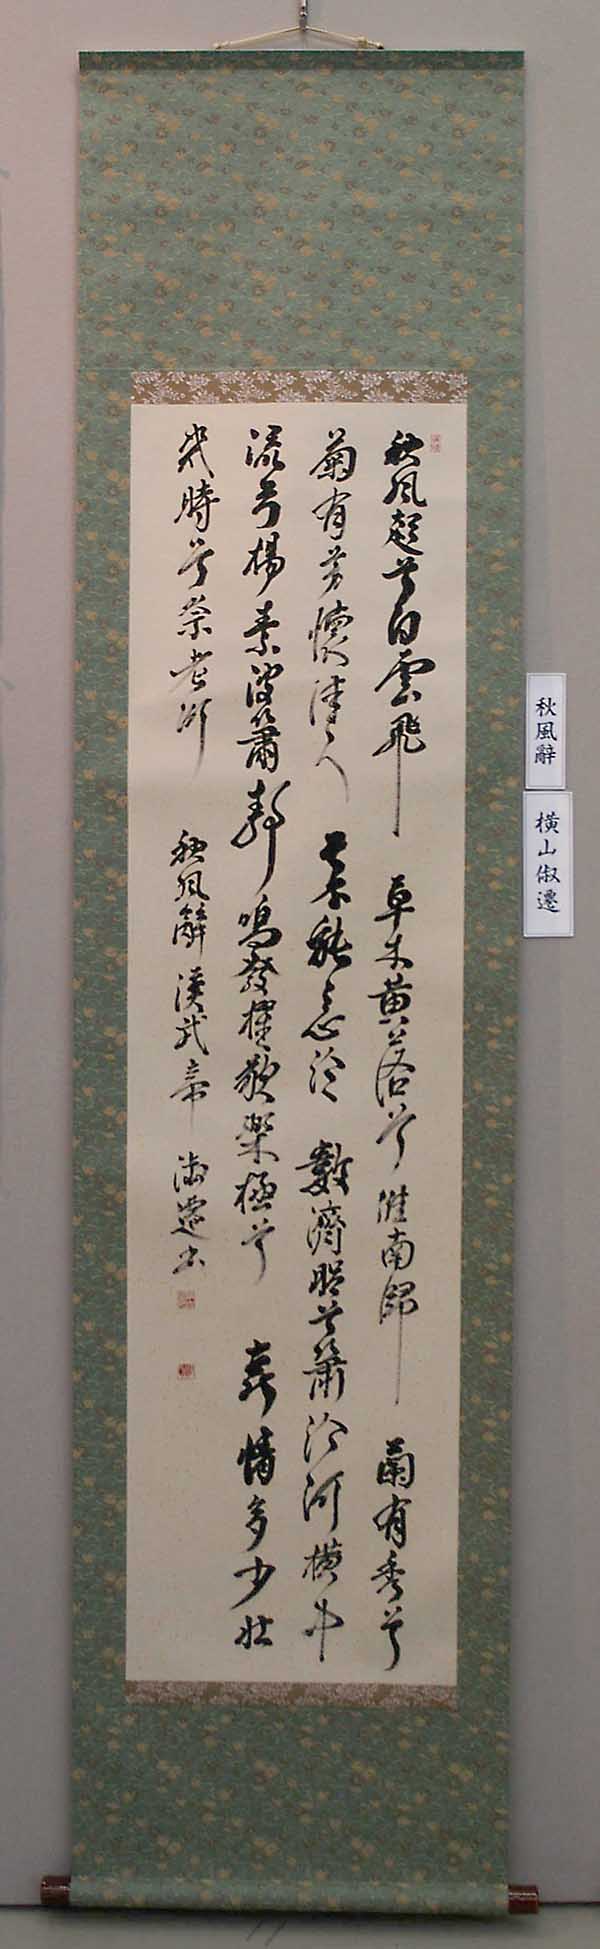 秋風起兮白雲飛草木黄落兮雁南歸蘭有秀兮
菊有芳懷佳人兮不能忘泛兮汾河橫中
流兮揚素波簫鼓鳴發櫂歌樂極兮哀情多少壯
幾時兮奈老何 秋風辭 漢武帝 俶遷書
秋風辭
横山俶遷